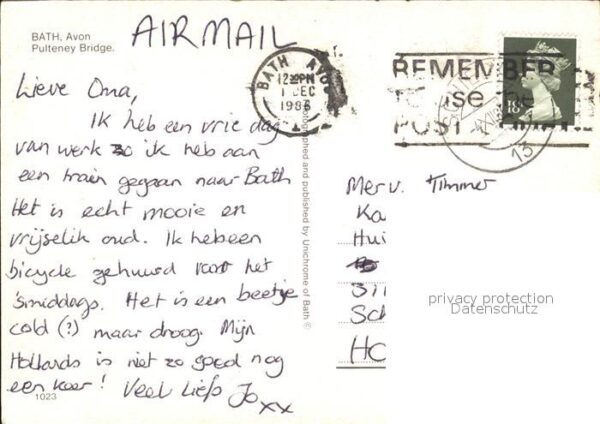 BATH, Avon
Pulteney Bridge.
AIRMAIL
Lieve Oma,
Ik heb een vrie dag
van werk zo ik heb aan
een train gegaan naar Bath
Het is echt mooie en
vrijselik oud. Ik hebeen
bicycle gehuurd voor het
'smiddags. Het is een beetje
cold (?) maar droog. Mijn
Hollands is niet zo goed nog
een keer! Veel Liefs Jo xx
1023
Photographed and published by Unichrome of Bath ©
BATH AVON
12 PM
1 DEC
1986
REMEMBER
use the
POST
18
13
Merv. Timmer
Ka
Hui
Sch
Ho
privacy protection
Datenschutz